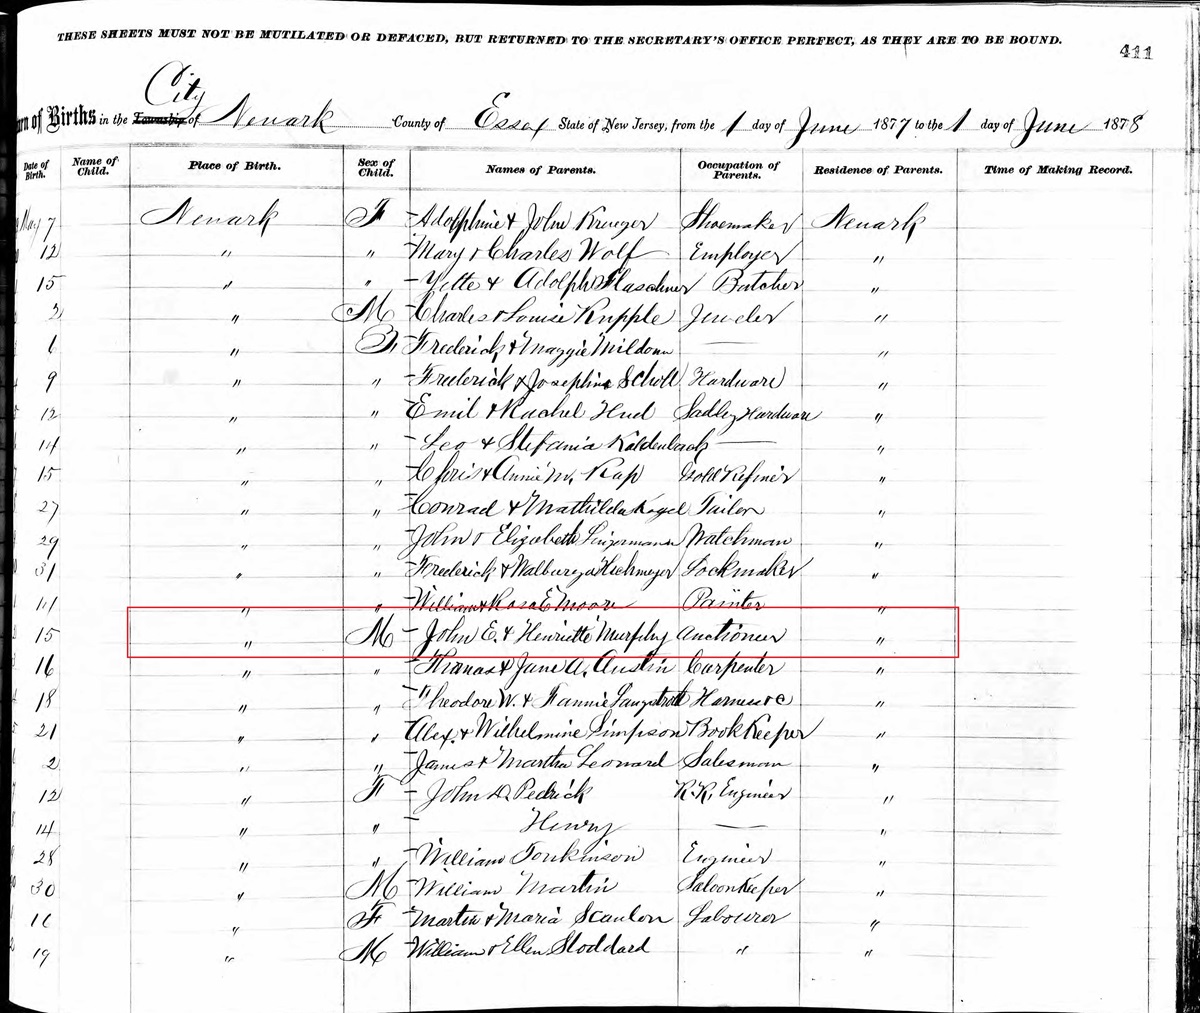 THESE SHEETS MUST NOT BE MUTILATED OR DEFACED, BUT RETURNED TO THE SECRETARY'S OFFICE PERFECT, AS THEY ARE TO BE BOUND.
411
City
of Births in the Township of Newark County of Essex State of New Jersey, from the 1 day of June 1877 to the 1 day of June 1878
Date of Birth. Name of Child. Place of Birth. Sex of Child. Names of Parents. Occupation of Parents. Residence of Parents. Time of Making Record.
May 7 Newark F Adolphine & John Krueger Shoemaker Newark
12 " " Mary & Charles Wolf Employer "
15 " " Yette & Adolph Butcher "
2 " M Charles & Louise Knpple Jeweler "
6 " F Frederick & Maggie Mildom — "
9 " " Frederick & Josephine Scholl Hardware "
12 " " Emil & Rachel Hud Sadley Hardware "
14 " " Leo & Stefania Kaldenbach — "
15 " " Chris & Annie M. Rap Gold Refiner "
27 " " Conrad & Mathilda Kogel Tailor "
29 " " John & Elizabeth Watchman "
31 " " Frederick & Walburga Lockmaker "
11 " " William & Rosa E Moore Painter "
15 " M John E. & Henriette Murphy Auctioneer "
16 " " Thomas & Jane A. Austin Carpenter "
18 " " Theodore W. & Fannie "
21 " " Alex. & Wilhelmine Simpson Book Keeper "
2 " " James & Martha Leonard Salesman "
12 " F John D. Pedrick R.R. Engineer "
14 " " Henry — "
28 " " William Tonkinson Engineer "
30 " M William Martin Saloon Keeper "
16 " F Martin & Maria Scanlon Labourer "
19 " M William & Ellen Stoddard " "